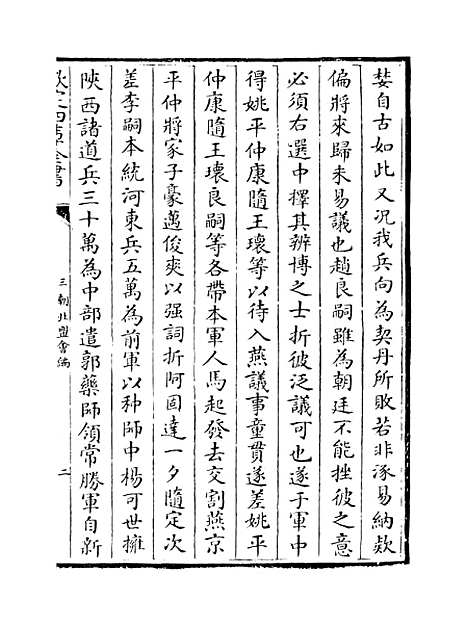 婪自古如此又况我兵向為契丹所敗若非涿易納欵
偏將來歸未易議也趙良嗣雖為朝廷不能挫彼之意
必須右選中擇其辨博之士折彼泛議可也遂于軍中
得姚平仲康隨王瓌等以待入燕議事童貫遂差姚平
仲康隨王瓌良嗣等各帶本軍人馬起發去交割燕京
平仲將家子豪邁俊爽以强詞折阿固達一夕隨定次
差李嗣本統河東兵五萬為前軍以种師中楊可世擁
陜西諸道兵三十萬為中部遣郭藥師領常勝軍自新
欽定四庫全書
三朝北盟會編
二